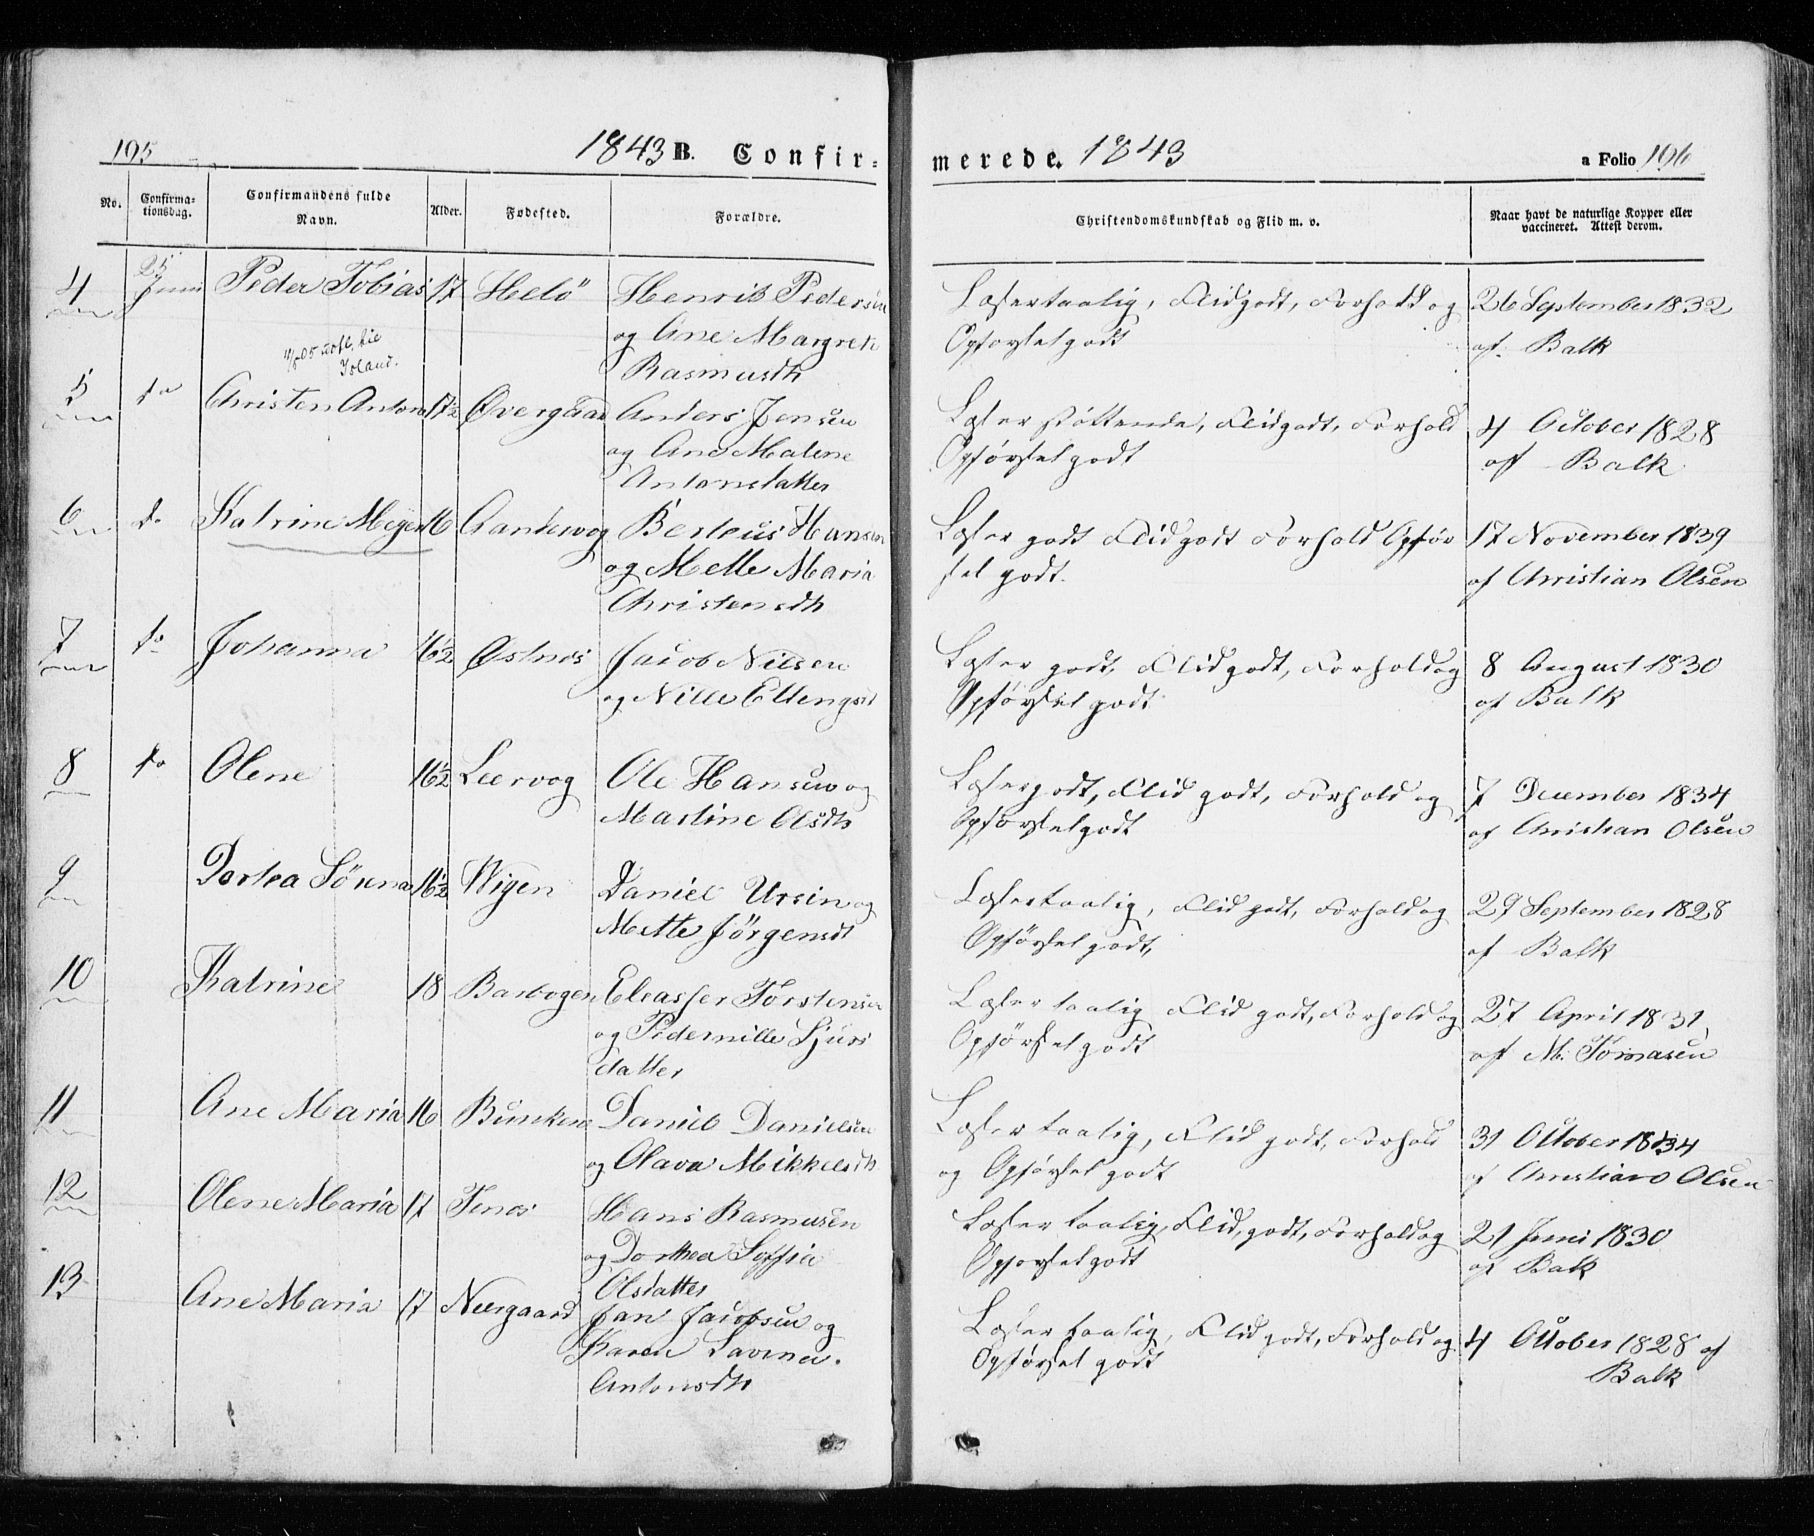 195 1843 B. Confir- merede. 1843 a Folio 196
No. Confirma-tionsdag. Confirmandens fulde Navn. Alder. Fødested. Forældre. Christendomskundskab og Flid m. v. Naar havt de naturlige Kopper eller vaccineret. Attest derom.
4 25 Juni Peder Tobias 17 Helö Henrik Pedersen Læser taalig, Flid godt, Forhold og 26 September 1832
og Ane Margreth Opførsel godt af Balk
Rasmusdt
Island.
5 do Christen Anton 17½ Øvergaard Anders Jensen Læser støttende, Flid godt, Forhold 4 October 1828
og Ane Malene Opførsel godt af Balk
Antonsdatter
6 do Katrine Meyer 16 Berteus Hansen Læser godt Flid godt Forhold Opfør 17 November 1839
og Mette Maria sel godt. af Christian Olsen
Christensdt
7 do Johanna 16½ Østnes Jacob Nilsen Læser godt, Flid godt, Forhold og 8 August 1830
og Nille Ellengsdt Opførsel godt af Balk
8 do Olene 16½ Leervog Ole Hansen og Læser godt, Flid godt, Forhold og 7 December 1834
Martine Olsdt Opførsel godt af Christian Olsen
9 Dortea Sörena 16½ Wigen Daniel Ursin og Læser taalig, Flid godt, Forhold og 29 September 1828
Mette Jörgensdt Opførsel godt, af Balk
10 Katrine 18 Barbogen Eleasser Torstensen Læser taalig Flid godt, Forhold og 27 April 1831
og Pedernille Sjurs Opførsel godt af M. Tomasen
datter
11 Ane Maria 16 Bunken Daniel Danielsen Læser taalig, Flid godt, Forhold 31 October 1834
og Olava Mikkelsdt og Opførsel godt af Christian Olsen
12 Olene Maria 17 Tenes Hans Rasmusen Læser taalig, Flid godt, Forhold og 21 Juni 1830
og Dorthea Soffia Opførsel godt af Balk
Olsdatter
13 Ane Maria 17 Neergaard Jan Jacobsen og Læser taalig, Flid godt, Forhold og 4 October 1828 af
Karen Lavina Opførsel godt Balk
Antonsdt